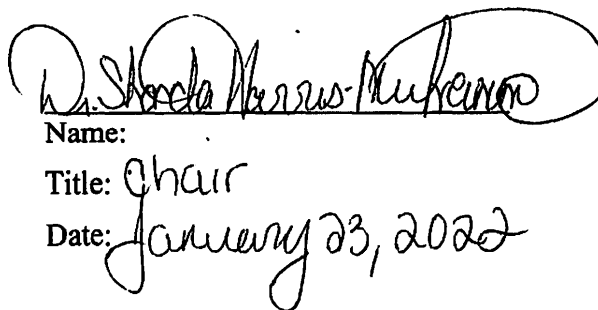 Dr. Shonda Harris-Muhammad
Name:
Title: Chair
Date: January 23, 2022